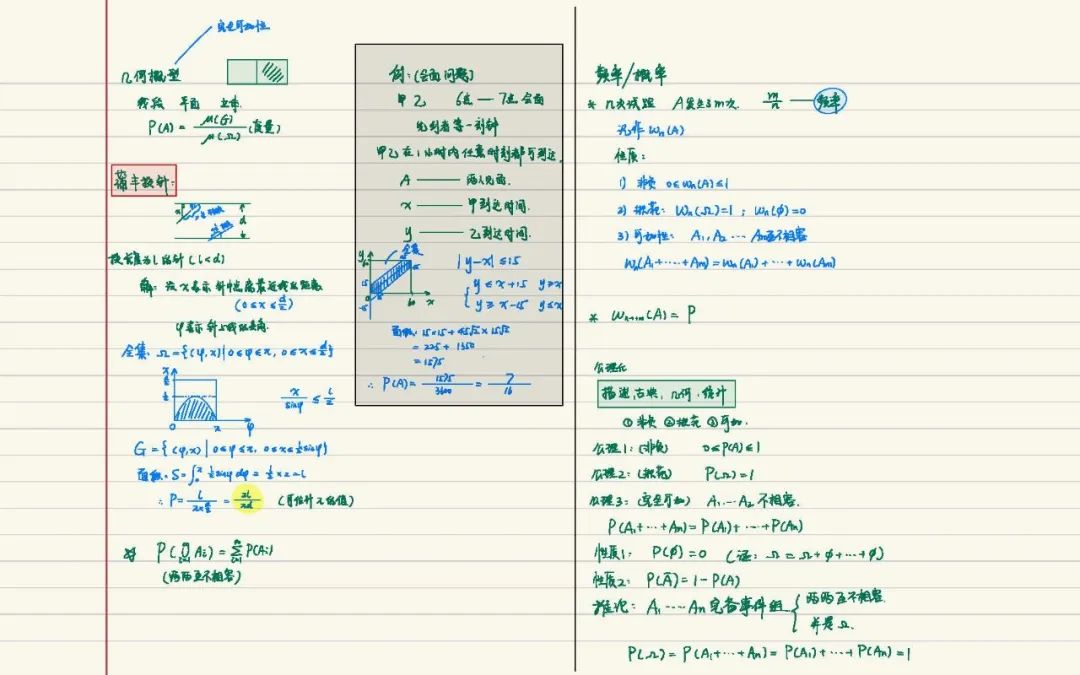 完全可加性
几何概型
线段 平面 立体
P(A) = μ(G)/μ(Ω) (度量)
蒲丰投针:
d
投长度为l的针 (l<d)
解: 设x表示针中点离最近线的距离
(0≤x≤d/2)
φ表示针与线的夹角.
全集: Ω={(φ,x)|0≤φ≤π, 0≤x≤d/2}
x
0 π φ
x/sinφ ≤ l/2
G={(φ,x)|0≤φ≤π, 0≤x≤l/2 sinφ}
面积: S=∫₀^π l/2 sinφ dφ = l/2 × 2 = l
∴ P = l/(π×d/2) = 2l/πd (可估计π的值)
P(⋃Ai) = ΣP(Ai)
(两两互不相容)
例: (会面问题)
甲乙 6点 — 7点会面
先到者等一刻钟
甲乙在1小时内任意时刻都可到达.
A —— 两人见面.
x —— 甲到达时间.
y —— 乙到达时间.
y 全集
15
60 x
|y-x|≤15
y≤x+15 y≥x
y≥x-15 y≤x
面积: 15×15+45√2×15√2
= 225 + 1350
= 1575
∴ P(A) = 1575/3600 = 7/16
频率/概率
* n次试验 A发生了m次. m/n —— 频率
记作 Wn(A)
性质:
1) 非负 0≤Wn(A)≤1
2) 规范: Wn(Ω)=1; Wn(∅)=0
3) 可加性: A₁, A₂ ⋯ Am互不相容
Wn(A₁+⋯+Am)=Wn(A₁)+⋯+Wn(Am)
* Wn→∞(A) = P
公理化
描述, 古典, 几何, 统计
① 非负 ② 规范 ③ 可加.
公理1: (非负) 0≤P(A)≤1
公理2: (规范) P(Ω)=1
公理3: (完全可加) A₁⋯A₂ 不相容.
P(A₁+⋯+An)=P(A₁)+⋯+P(An)
性质1: P(∅)=0 (证: Ω=Ω+∅+⋯+∅)
性质2: P(Ā)=1-P(A)
推论: A₁⋯An 完备事件组 两两互不相容.
并是Ω.
P(Ω) = P(A₁+⋯+An) = P(A₁)+⋯+P(An)=1